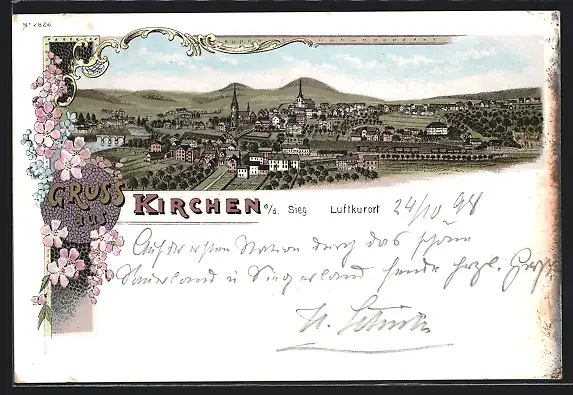 No 2826
GRUSS
aus
KIRCHEN a/d. Sieg Luftkurort 24/10 98
Auf der ersten Station durch das schöne
Sauerland u Siegerland sende herzl.